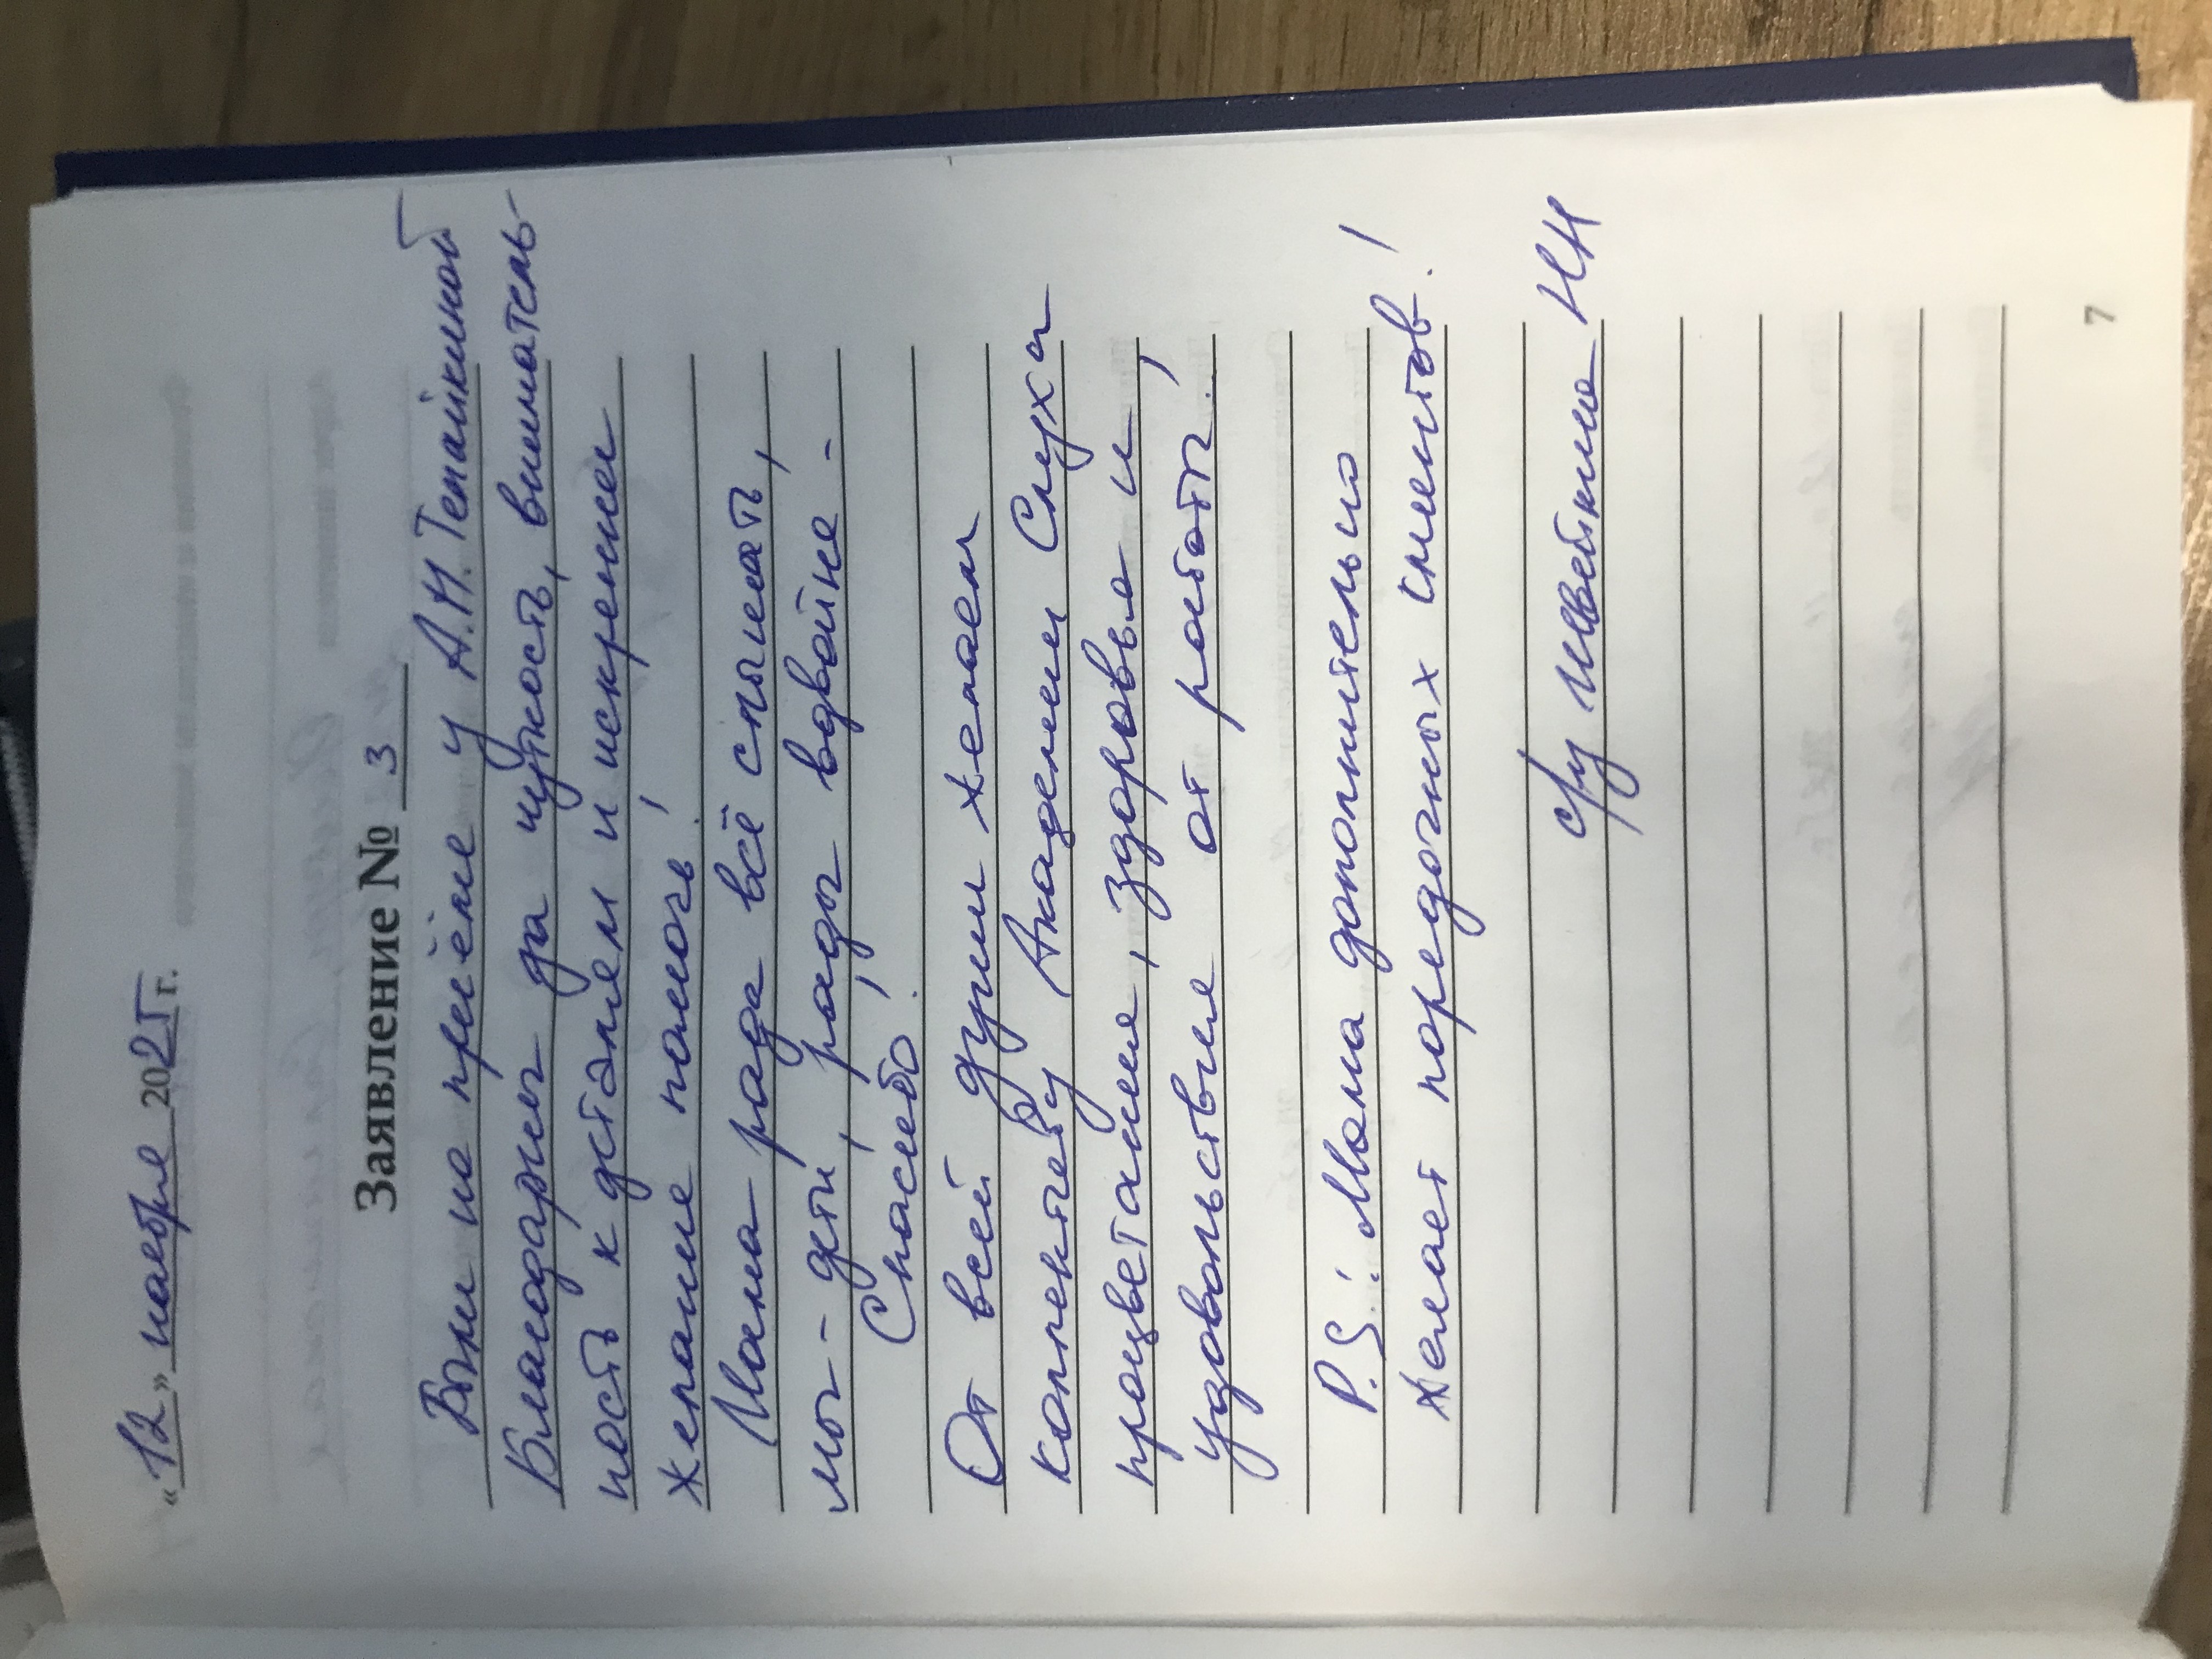 «12» ноября 2021 г.
Заявление № 3
Были на приёме у А.И.
Благодарны за чуткость, вниматель-
ность к деталям и искреннее
желание помочь!
Мама рада всё слышать,
мы - дети, рады вдвойне.
Спасибо!
От всей души желаем
коллективу Академии Слуха
процветание, здоровье и
удовольствие от работы!
P.S.: Мама дополнительно
желает порядочных клиентов!
НН
7